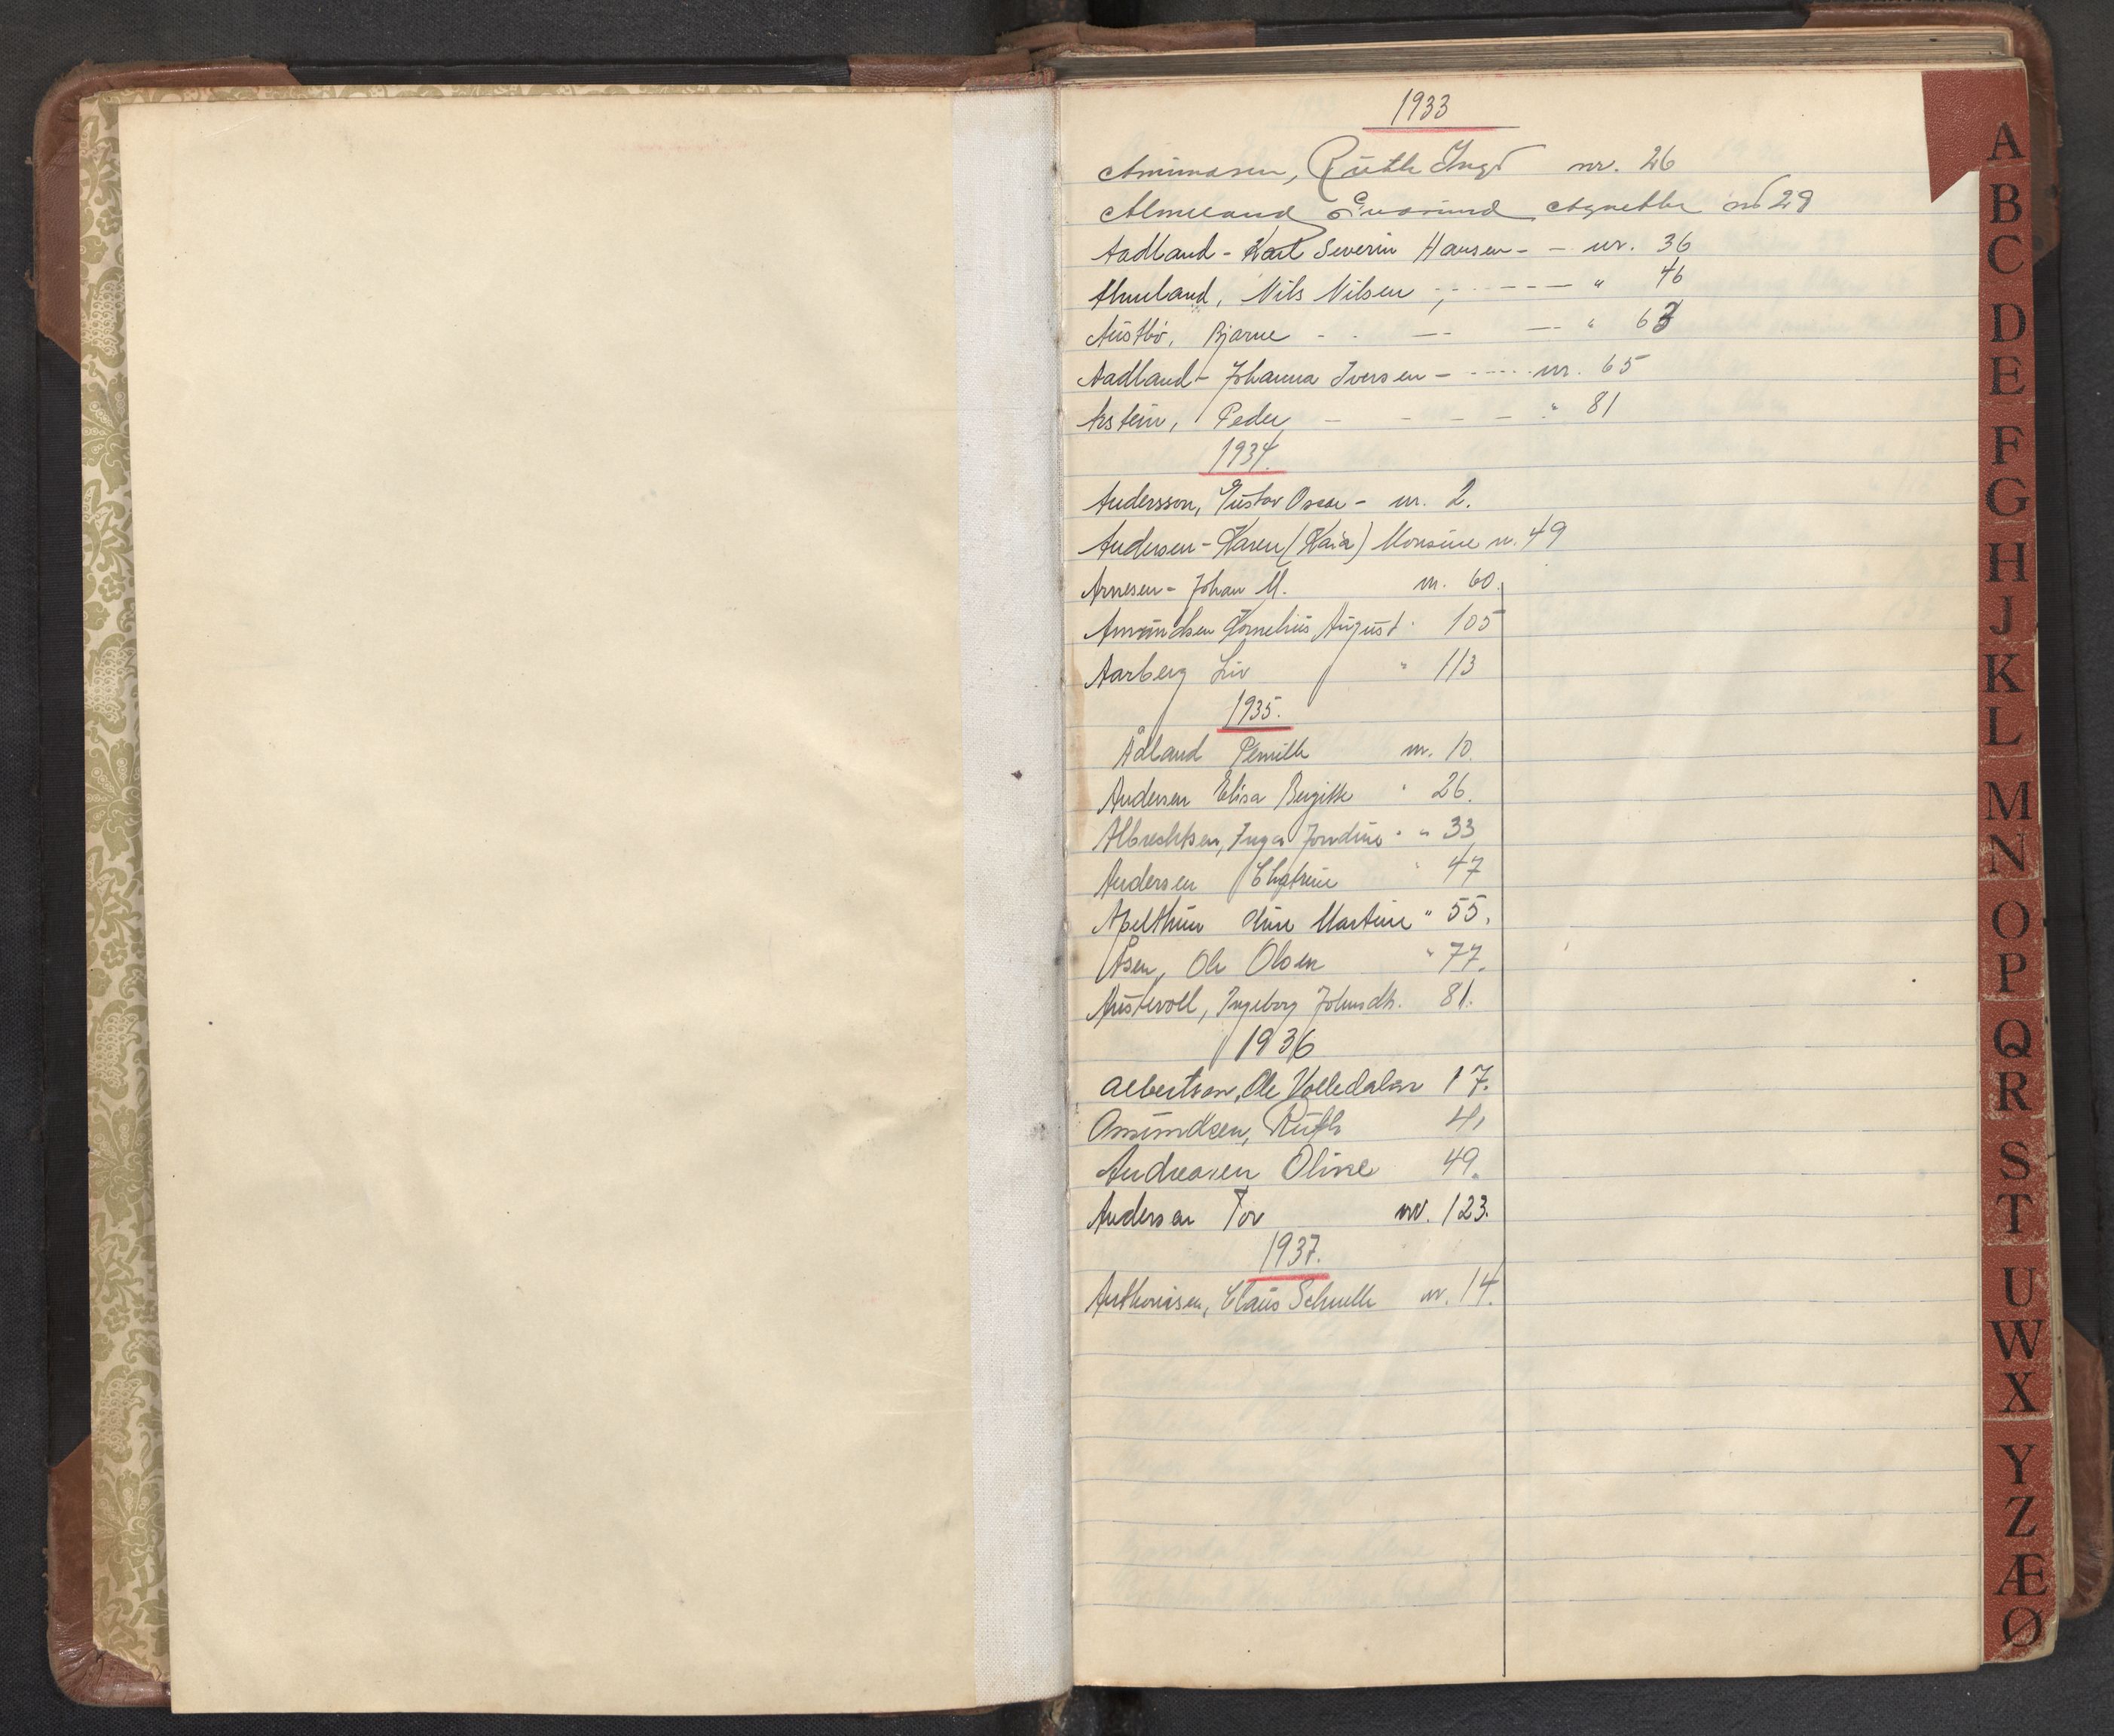 1933
Ruth nr. 26
Agnethe 28
Aadland - Karl Severin Hansen - - nr. 36
Almeland, Nils Nilsen - - - - - " 46
Austbö, Bjarne - - - - " 63
Aadland - Johanna Iversen - - - - nr. 65
Arstein, Peder - - - - " 81
1934.
Andersson, Gustav Oscar - nr. 2.
Andersen - Karen (Kaia) Monsine nr. 49
Arnesen - Johan M. nr. 60.
Amundsen Kornelius August " 105
Aarberg Liv " 113
1935.
Ådland Pernille nr. 10.
Andersen Elisa Bergitte " 26.
Albrechtsen, Inga " " 33
Andersen Chatrine " 47
Apelthun Martine " 55.
Åsen, Ole Olsen " 77.
Austevoll, Ingeborg Johnsdtr. 81.
1936
Albertsen, Ole 17.
Amundsen, Ruth 41
Andreasen Oline 49.
Andersen Tor nr. 123.
1937.
Anthonisen, Claus Schnelle nr. 14.
A
B
C
D
E
F
G
H
J
K
L
M
N
O
P
Q
R
S
T
U
W
X
Y
Z
Æ
Ø